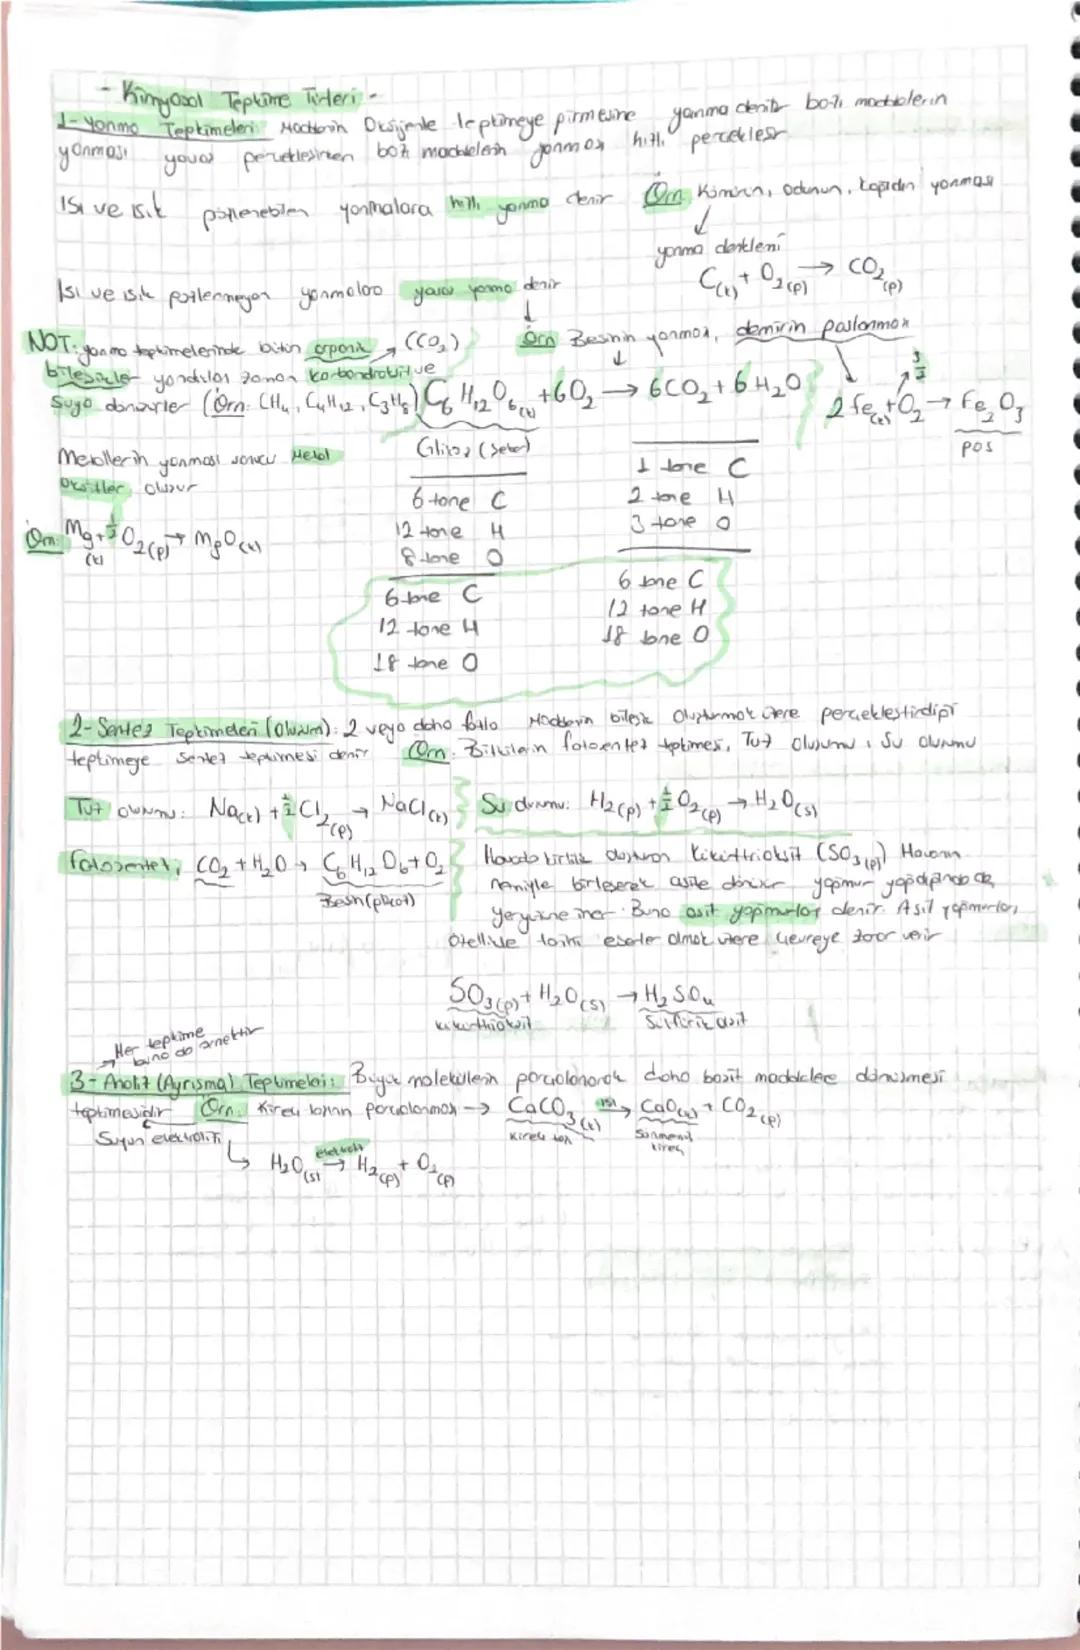 - Kimyasal Tepkime Türleri -
1- Yanma Tepkimeleri: Maddenin Oksijenle tepkimeye girmesine yanma denir bazı maddelerin
yanması yavaş gerçekleşirken bazı maddelerin yanması hızlı gerçekleşir
ISI ve ışık gözlenebilen yanmalara hızlı yanma denir Örn Kömürün, odunun, kağıdın yanması
yanma denklemi
C(k) + O2(g) → CO2(g)
Isı ve ışık gözlenmeyen yanmalara yavaş yanma denir
Örn Besinin yanması, demirin paslanması
NOT: yanma tepkimelerinde bütün organik (CO2)
bileşikler yandıkları zaman karbondioksit ve
Suya dönüşürler (Örn: CH4, C4H12, C3H8)
C6H12O6(k) + 6O2 → 6CO2 + 6H2O
2Fe(k) + O2 → Fe2O3
3/2
Glikoz (Şeker)
pas
Metallerin yanması sonucu Metal
Oksitler oluşur
Örn: Mg(k) + 1/2 O2(g) → MgO(k)
6 tane C
12 tane H
8 tane O
1 tane C
2 tane H
3 tane O
6 tane C
12 tane H
18 tane O
6 tane C
12 tane H
18 tane O
2- Sentez Tepkimeleri (Oluşum): 2 veya daha fazla Maddenin bileşik Oluşturmak üzere gerçekleştirdiği
tepkimeye Sentez tepkimesi denir Örn: Bitkilerin fotosentez tepkimesi, Tuz Oluşumu, Su Oluşumu
Tuz oluşumu: Na(k) + 1/2 Cl2(g) → NaCl(k)
Su oluşumu: H2(g) + 1/2 O2(g) → H2O(s)
fotosentez; CO2 + H2O → C6H12O6 + O2
Besin (glikoz)
Havada kirlilik oluşturan Kükürttrioksit (SO3(g)) Havanın
nemiyle birleşerek asite dönüşür yağmur yağdığında da,
yeryüzüne iner. Buna asit yağmurları denir. Asit yağmurları,
özellikle tarihi eserler olmak üzere çevreye zarar verir
SO3(g) + H2O(s) → H2SO4
kükürttrioksit
Sülfürik asit
Her tepkime
buna da örnektir
3- Analiz (Ayrışma) Tepkimeleri: Büyük moleküllerin parçalanarak daha basit maddelere dönüşmesi
tepkimesidir Örn: Kireç taşının parçalanması → CaCO3(k) ısı → CaO(k) + CO2(g)
kireç taşı
Sönmemiş
kireç
Suyun elektrolizi
H2O(s) elektroliz → H2(g) + O2(g)